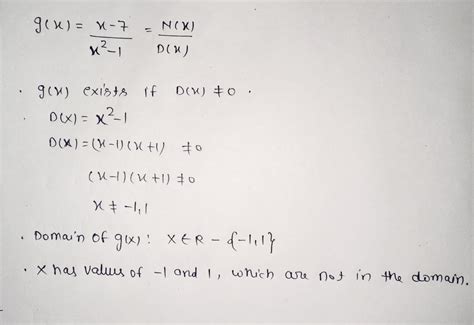 g(x) = x-7 / x²-1 = N(x) / D(x)
. g(x) exists if D(x) ≠ 0 .
. D(x) = x²-1
D(x) = (x-1)(x+1) ≠0
(x-1)(x+1) ≠0
x ≠ -1,1
. Domain of g(x) : x∈R - {-1,1}
. x has values of -1 and 1, which are not in the domain.